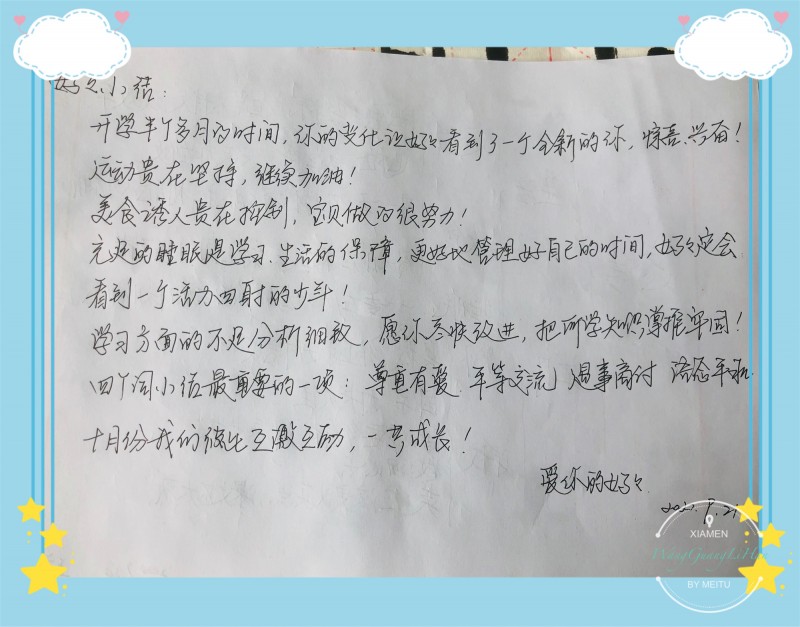 妈妈小结:
开学半个多月的时间,你的变化让妈妈看到了一个全新的你,惊喜、兴奋!
运动贵在坚持,继续加油!
美食诱人贵在控制,宝贝做的很努力!
充足的睡眠是学习、生活的保障,更好地管理好自己的时间,妈妈定会
看到一个活力四射的少年!
学习方面的不足分析细致,愿你尽快改进,把所学知识掌握牢固!
四个词小结最重要的一项:尊重有爱、平等交流、遇事商讨
十月份我们彼此互激互励,一共成长!
爱你的妈妈
XIAMEN
BY MEITU